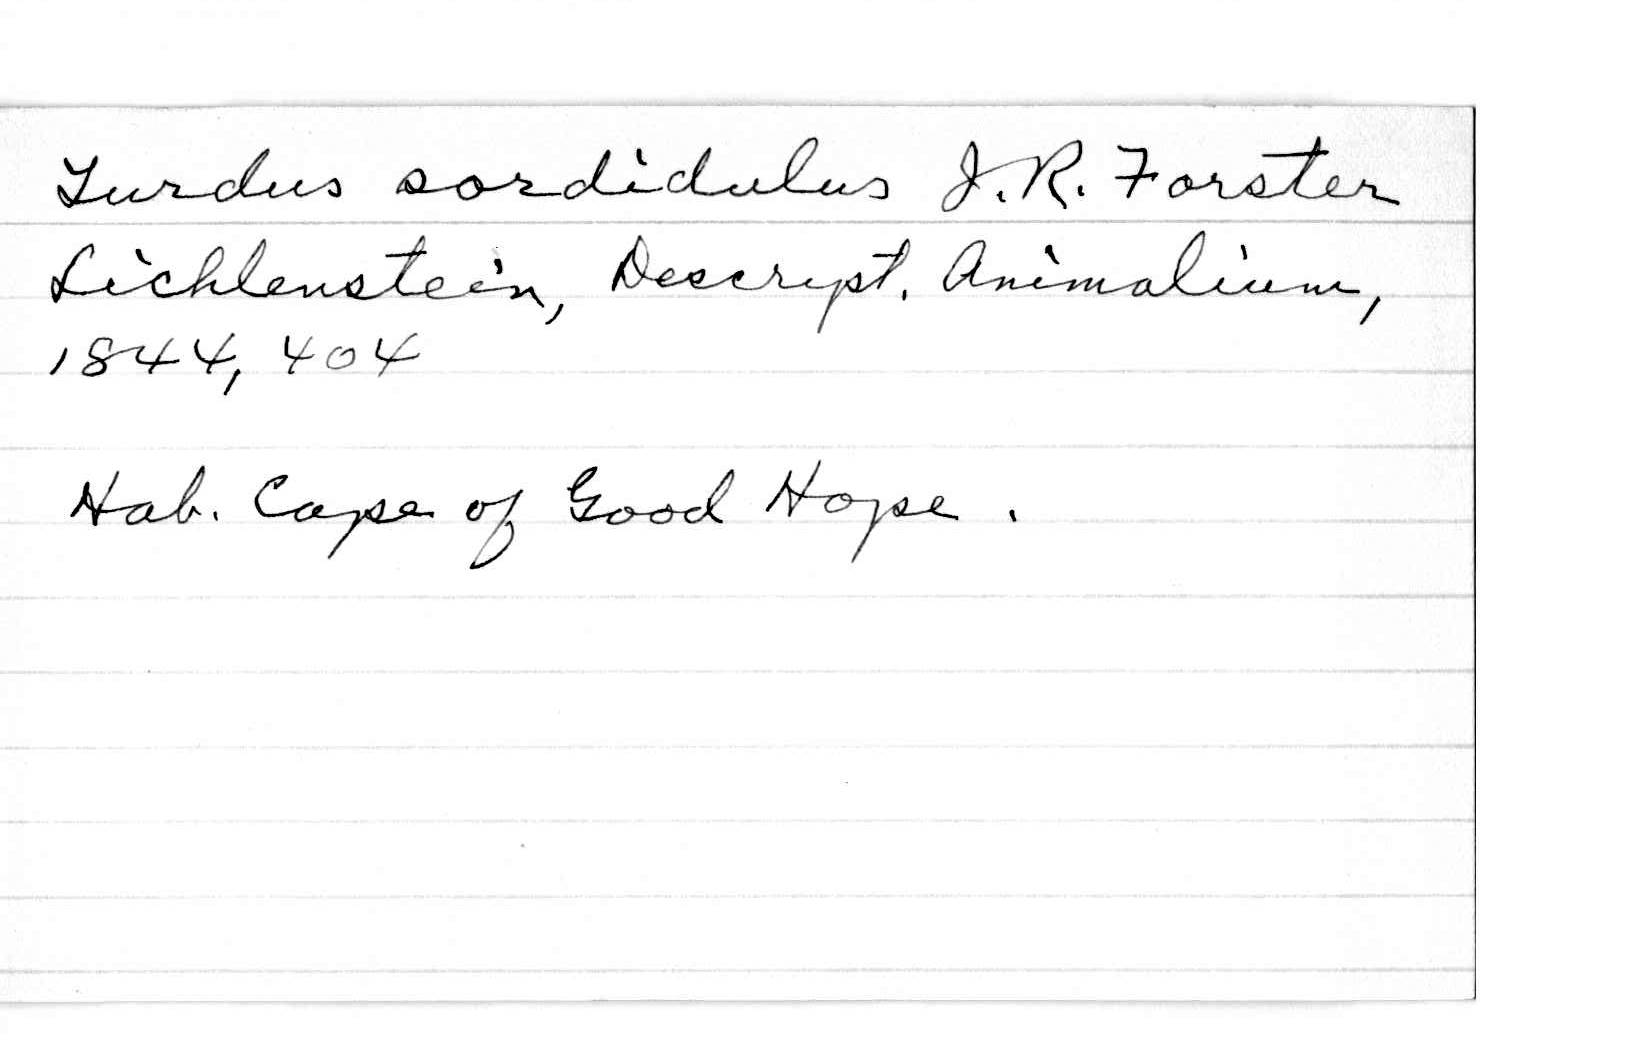 Turdus sordidulus J.R. Forster
Lichtenstein, Descript. Animalium,
1844, 404
Hab. Cape of Good Hope.